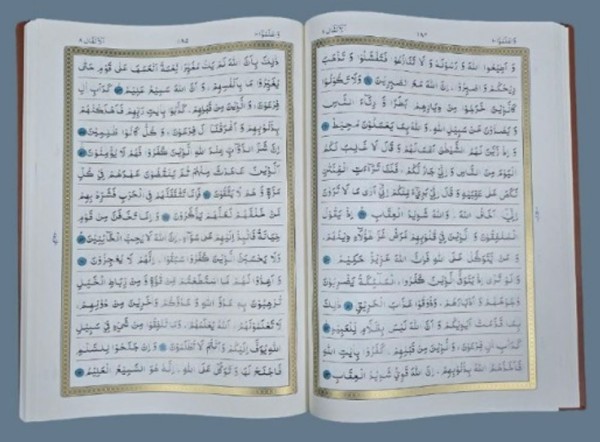 وَ اَطِيْعُوا اللهَ وَ رَسُوْلَهٗ وَ لَا تَنَازَعُوْا فَتَفْشَلُوْا وَ تَذْهَبَ
رِيْحُكُمْ وَ اصْبِرُوْا ، اِنَّ اللهَ مَعَ الصّٰبِرِيْنَ وَ لَا تَكُوْنُوْا
كَالَّذِيْنَ خَرَجُوْا مِنْ دِيَارِهِمْ بَطَرًا وَّ رِئَآءَ النَّاسِ
وَ يَصُدُّوْنَ عَنْ سَبِيْلِ اللهِ . وَ اللهُ بِمَا يَعْمَلُوْنَ مُحِيْطٌ
وَ اِذْ زَيَّنَ لَهُمُ الشَّيْطٰنُ اَعْمَالَهُمْ وَ قَالَ لَا غَالِبَ لَكُمُ
الْيَوْمَ مِنَ النَّاسِ وَ اِنِّيْ جَارٌ لَّكُمْ ، فَلَمَّا تَرَآءَتِ الْفِئَتٰنِ
نَكَصَ عَلٰى عَقِبَيْهِ وَ قَالَ اِنِّيْ بَرِيْٓءٌ مِّنْكُمْ اِنِّيْٓ اَرٰى مَا لَا تَرَوْنَ
اِنِّيْٓ اَخَافُ اللهَ . وَ اللهُ شَدِيْدُ الْعِقَابِ اِذْ يَقُوْلُ
الْمُنٰفِقُوْنَ وَ الَّذِيْنَ فِيْ قُلُوْبِهِمْ مَّرَضٌ غَرَّ هٰٓؤُلَآءِ دِيْنُهُمْ .
وَ مَنْ يَّتَوَكَّلْ عَلَى اللهِ فَاِنَّ اللهَ عَزِيْزٌ حَكِيْمٌ
وَ لَوْ تَرٰٓى اِذْ يَتَوَفَّى الَّذِيْنَ كَفَرُوا ، الْمَلٰٓئِكَةُ يَضْرِبُوْنَ
وُجُوْهَهُمْ وَ اَدْبَارَهُمْ ، وَ ذُوْقُوْا عَذَابَ الْحَرِيْقِ ذٰلِكَ
بِمَا قَدَّمَتْ اَيْدِيْكُمْ وَ اَنَّ اللهَ لَيْسَ بِظَلَّامٍ لِّلْعَبِيْدِ
كَدَاْبِ اٰلِ فِرْعَوْنَ ، وَ الَّذِيْنَ مِنْ قَبْلِهِمْ ، كَفَرُوْا بِاٰيٰتِ اللهِ
فَاَخَذَهُمُ اللهُ بِذُنُوْبِهِمْ ، اِنَّ اللهَ قَوِيٌّ شَدِيْدُ الْعِقَابِ
ذٰلِكَ بِاَنَّ اللهَ لَمْ يَكُ مُغَيِّرًا نِّعْمَةً اَنْعَمَهَا عَلٰى قَوْمٍ حَتّٰى
يُغَيِّرُوْا مَا بِاَنْفُسِهِمْ ، وَ اَنَّ اللهَ سَمِيْعٌ عَلِيْمٌ كَدَاْبِ اٰلِ
فِرْعَوْنَ ، وَ الَّذِيْنَ مِنْ قَبْلِهِمْ ، كَذَّبُوْا بِاٰيٰتِ رَبِّهِمْ فَاَهْلَكْنٰهُمْ
بِذُنُوْبِهِمْ وَ اَغْرَقْنَآ اٰلَ فِرْعَوْنَ ، وَ كُلٌّ كَانُوْا ظٰلِمِيْنَ
اِنَّ شَرَّ الدَّوَآبِّ عِنْدَ اللهِ الَّذِيْنَ كَفَرُوْا فَهُمْ لَا يُؤْمِنُوْنَ
اَلَّذِيْنَ عٰهَدْتَّ مِنْهُمْ ثُمَّ يَنْقُضُوْنَ عَهْدَهُمْ فِيْ كُلِّ
مَرَّةٍ وَّ هُمْ لَا يَتَّقُوْنَ فَاِمَّا تَثْقَفَنَّهُمْ فِي الْحَرْبِ فَشَرِّدْ بِهِمْ
مَّنْ خَلْفَهُمْ لَعَلَّهُمْ يَذَّكَّرُوْنَ وَ اِمَّا تَخَافَنَّ مِنْ قَوْمٍ
خِيَانَةً فَانْۢبِذْ اِلَيْهِمْ عَلٰى سَوَآءٍ ، اِنَّ اللهَ لَا يُحِبُّ الْخَآئِنِيْنَ
وَ لَا يَحْسَبَنَّ الَّذِيْنَ كَفَرُوْا سَبَقُوْا ، اِنَّهُمْ لَا يُعْجِزُوْنَ
وَ اَعِدُّوْا لَهُمْ مَّا اسْتَطَعْتُمْ مِّنْ قُوَّةٍ وَّ مِنْ رِّبَاطِ الْخَيْلِ
تُرْهِبُوْنَ بِهٖ عَدُوَّ اللهِ وَ عَدُوَّكُمْ وَ اٰخَرِيْنَ مِنْ دُوْنِهِمْ ،
لَا تَعْلَمُوْنَهُمْ ، اَللهُ يَعْلَمُهُمْ ، وَ مَا تُنْفِقُوْا مِنْ شَيْءٍ فِيْ سَبِيْلِ
اللهِ يُوَفَّ اِلَيْكُمْ وَ اَنْتُمْ لَا تُظْلَمُوْنَ وَ اِنْ جَنَحُوْا لِلسَّلْمِ
فَاجْنَحْ لَهَا وَ تَوَكَّلْ عَلَى اللهِ ، اِنَّهٗ هُوَ السَّمِيْعُ الْعَلِيْمُ